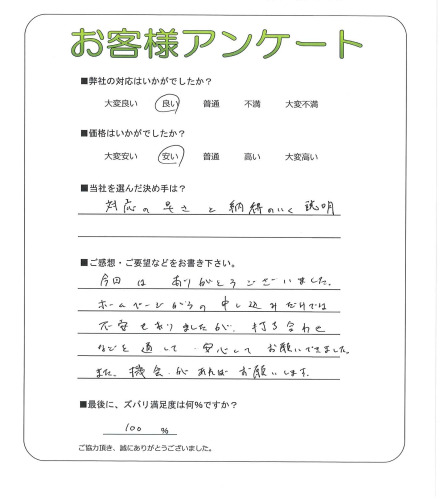 お客様アンケート
■弊社の対応はいかがでしたか？
大変良い 良い 普通 不満 大変不満
■価格はいかがでしたか？
大変安い 安い 普通 高い 大変高い
■当社を選んだ決め手は？
対応の早さと納得のいく説明
■ご感想・ご要望などをお書き下さい。
今回は ありがとうございました。
ホームページからの申し込みだけでは
不安もありましたが、打ち合わせ
などを通して 安心してお願いできました。
また、機会があればお願いします。
■最後に、ズバリ満足度は何％ですか？
100 ％
ご協力頂き、誠にありがとうございました。